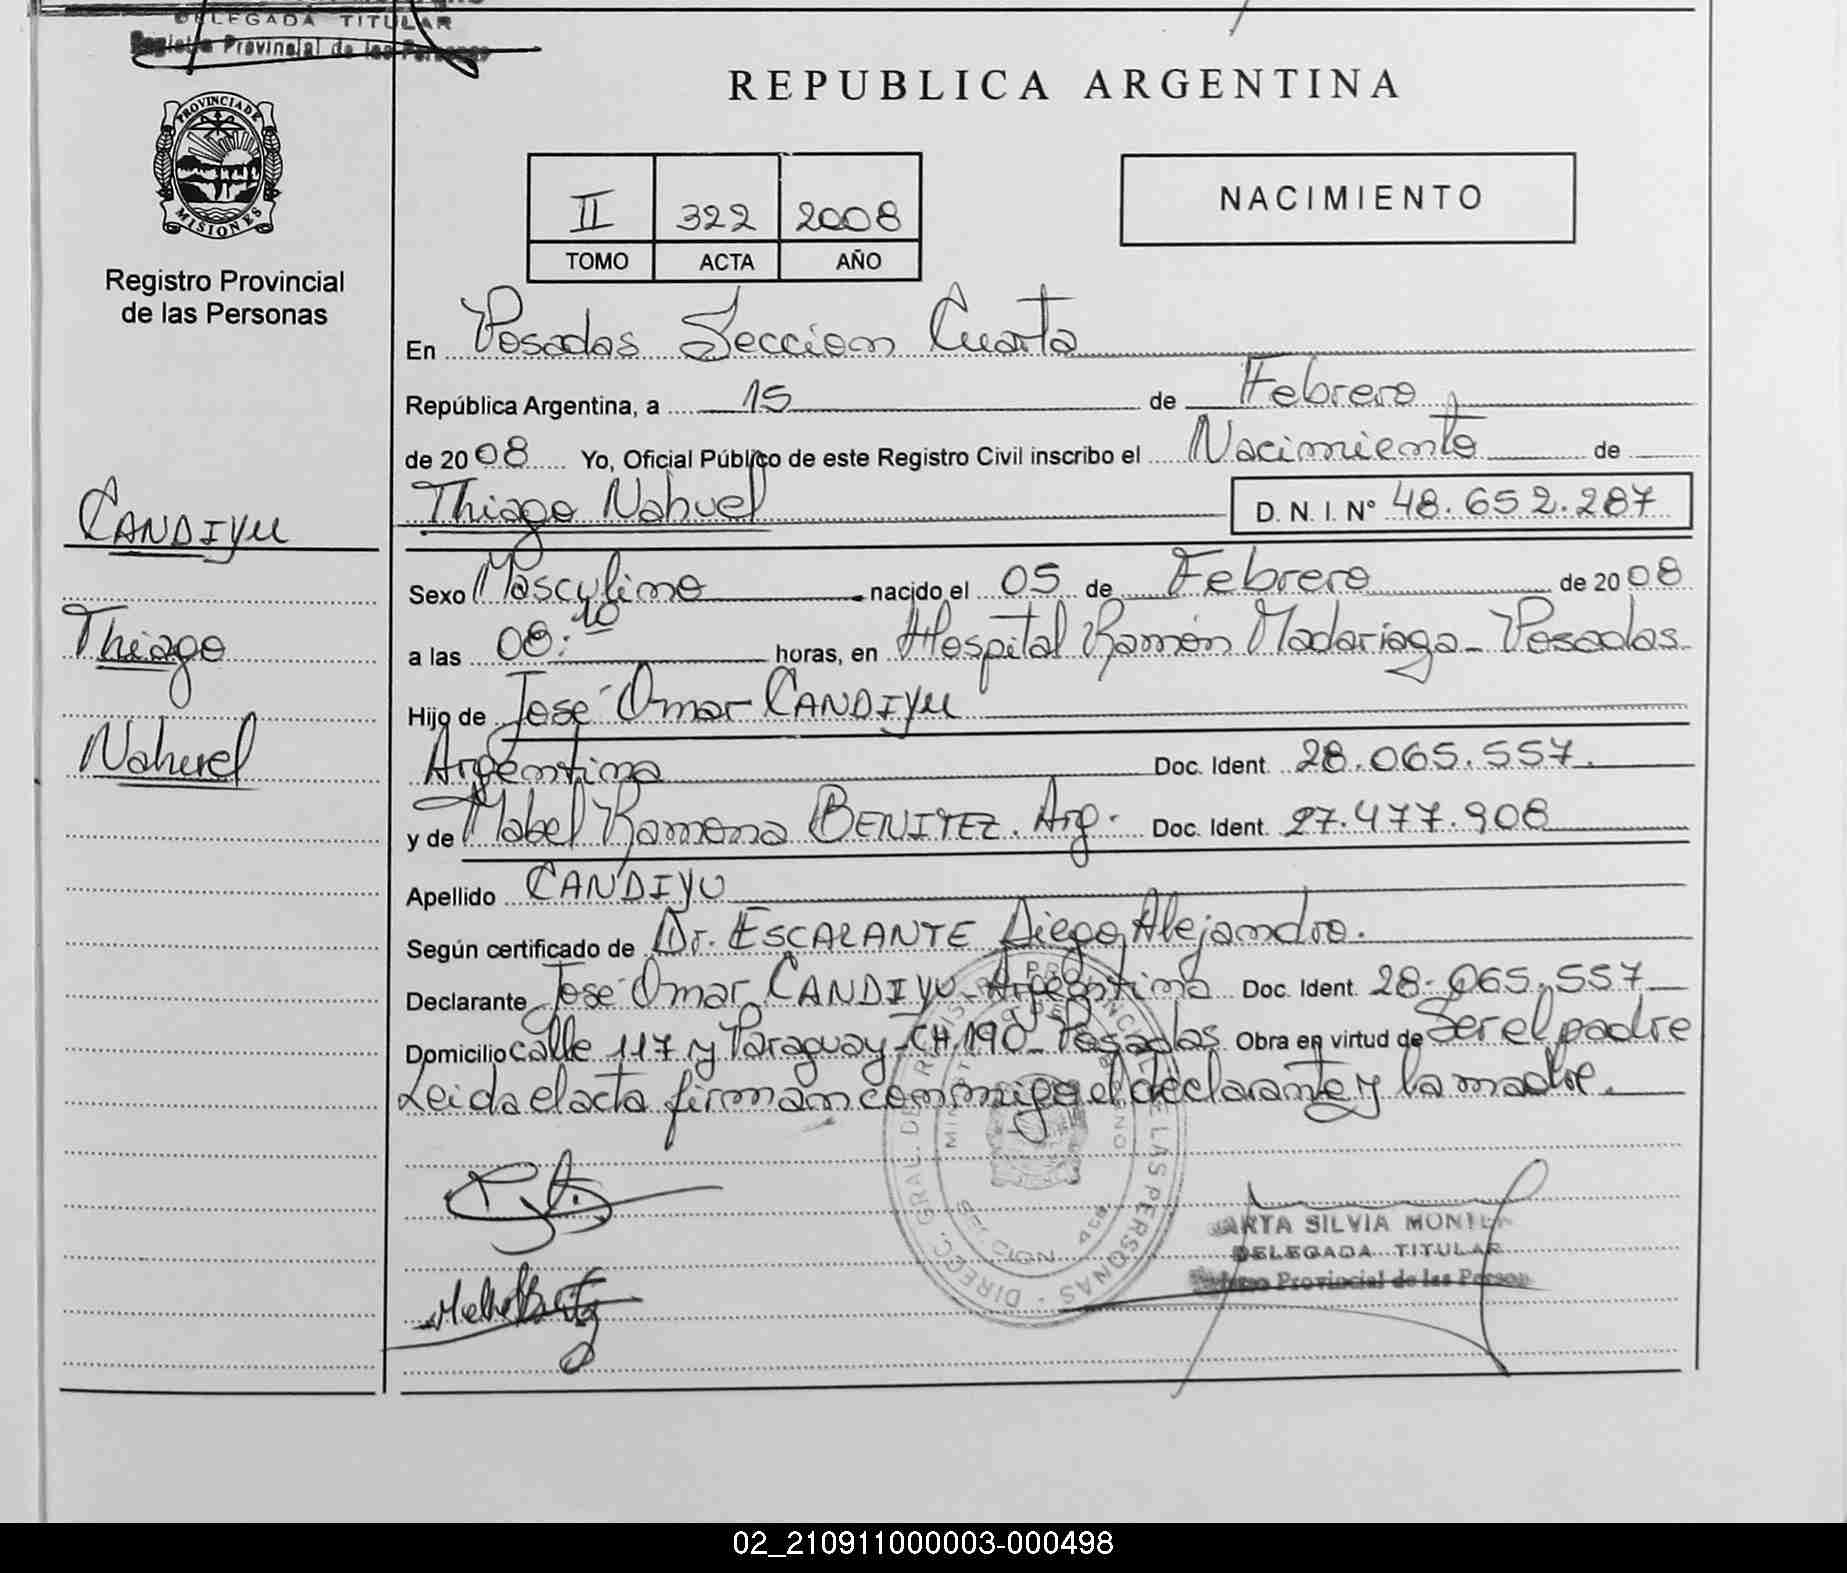 DELEGADA TITULAR
Registro Provincial de las Personas
REPUBLICA ARGENTINA
PROVINCIA DE
MISIONES
Registro Provincial
de las Personas
II 322 2008
TOMO ACTA AÑO
NACIMIENTO
En Posadas Seccion Cuarta
República Argentina, a 15 de Febrero
de 2008 Yo, Oficial Público de este Registro Civil inscribo el Nacimiento de
Thiago Nahuel D. N. I. N° 48.652.287
CANDIYU
Thiago
Nahuel
Sexo Masculino nacido el 05 de Febrero de 2008
a las 08:10 horas, en Hospital Ramón Madariaga - Posadas
Hijo de José Omar CANDIYU
Argentina Doc. Ident. 28.065.557.
y de Mabel Ramona BENITEZ. Arg. Doc. Ident. 27.477.908
Apellido CANDIYU
Según certificado de Dr. ESCALANTE Diego Alejandro.
Declarante José Omar CANDIYU - Argentina Doc. Ident. 28.065.557
Domicilio calle 117 y Paraguay - CH.190 - Posadas Obra en virtud de Ser el padre
Leida el acta firman conmigo el declarante y la madre.
DIREC. GRAL. DE REGISTRO PROVINCIAL DE LAS PERSONAS
SECCION 4ta
ARTA SILVIA
DELEGADA TITULAR
Provincial de las Person
02_210911000003-000498